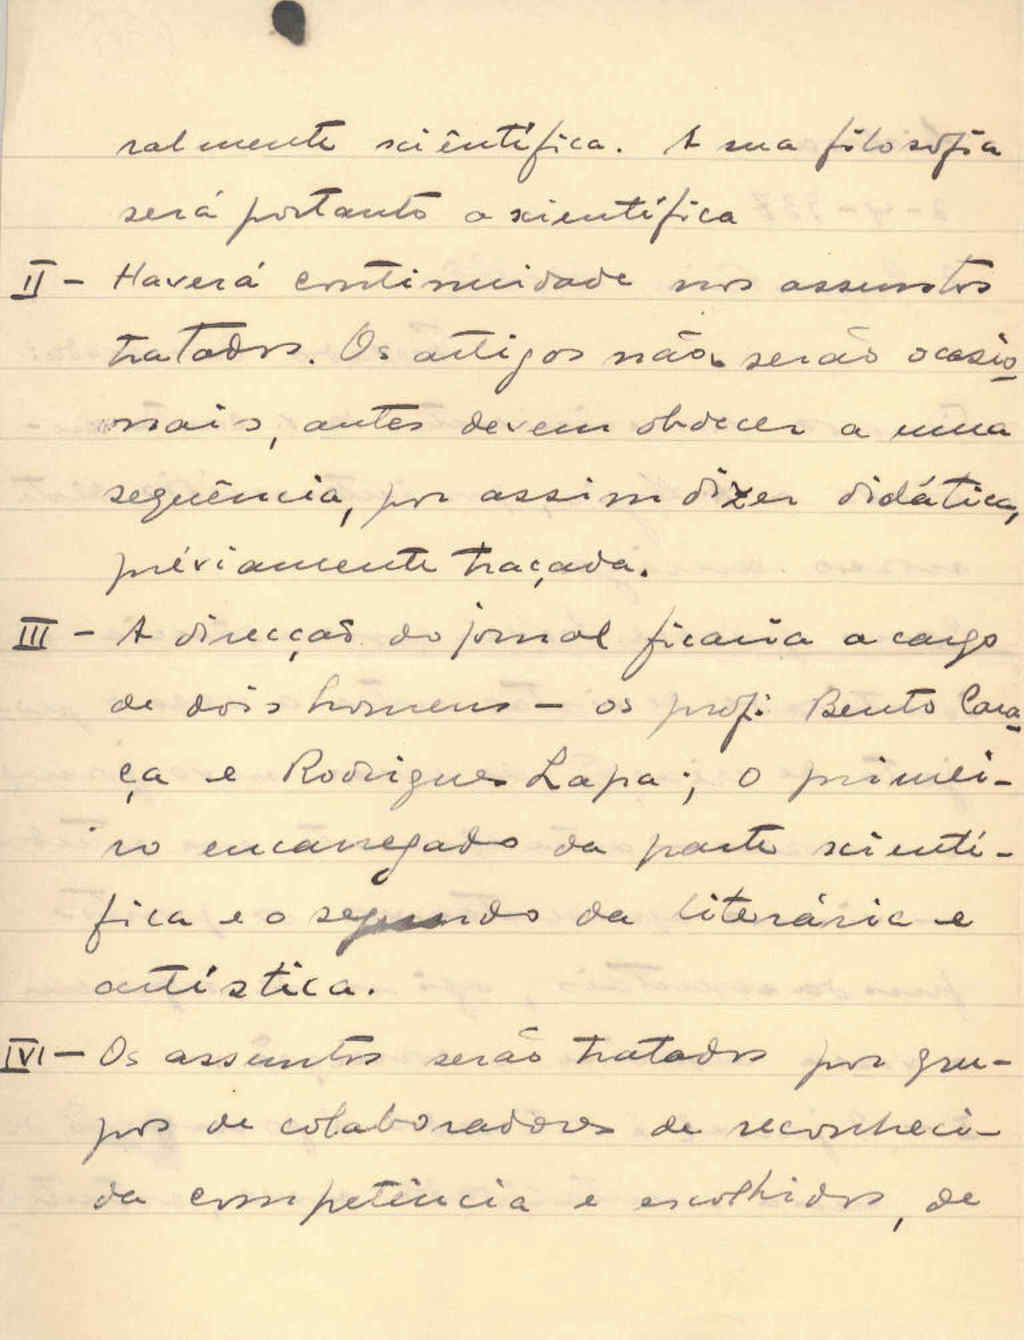 ralmente sciêntífica. A sua filosofia
será portanto a scientífica
II - Haverá continuidade nos assuntos
tratados. Os artigos não serão ocasio
nais, antes devem obdecer a uma
sequência, por assim dizer didática,
préviamente traçada.
III - A direcção do jornal ficaria a cargo
de dois homens - os prof: Bento Cara
ça e Rodrigues Lapa; o primei-
ro encarregado da parte scientí-
fica e o segundo da literária e
artística.
IV - Os assuntos serão tratados por gru-
pos de colaboradores de reconheci-
da competência e escolhidos, de